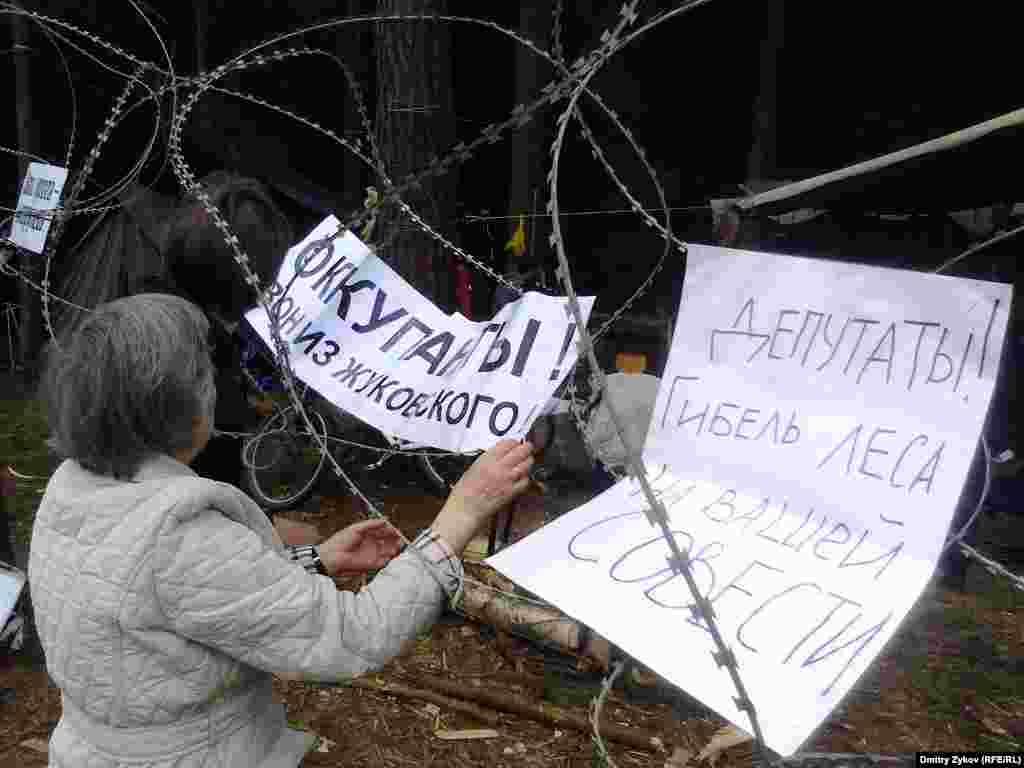 ОККУПАНТЫ!
ВОН ИЗ ЖУКОВСКОГО!
ДЕПУТАТЫ!!
ГИБЕЛЬ ЛЕСА
НА ВАШЕЙ
СОВЕСТИ
Dmitry Zykov (RFE/RL)